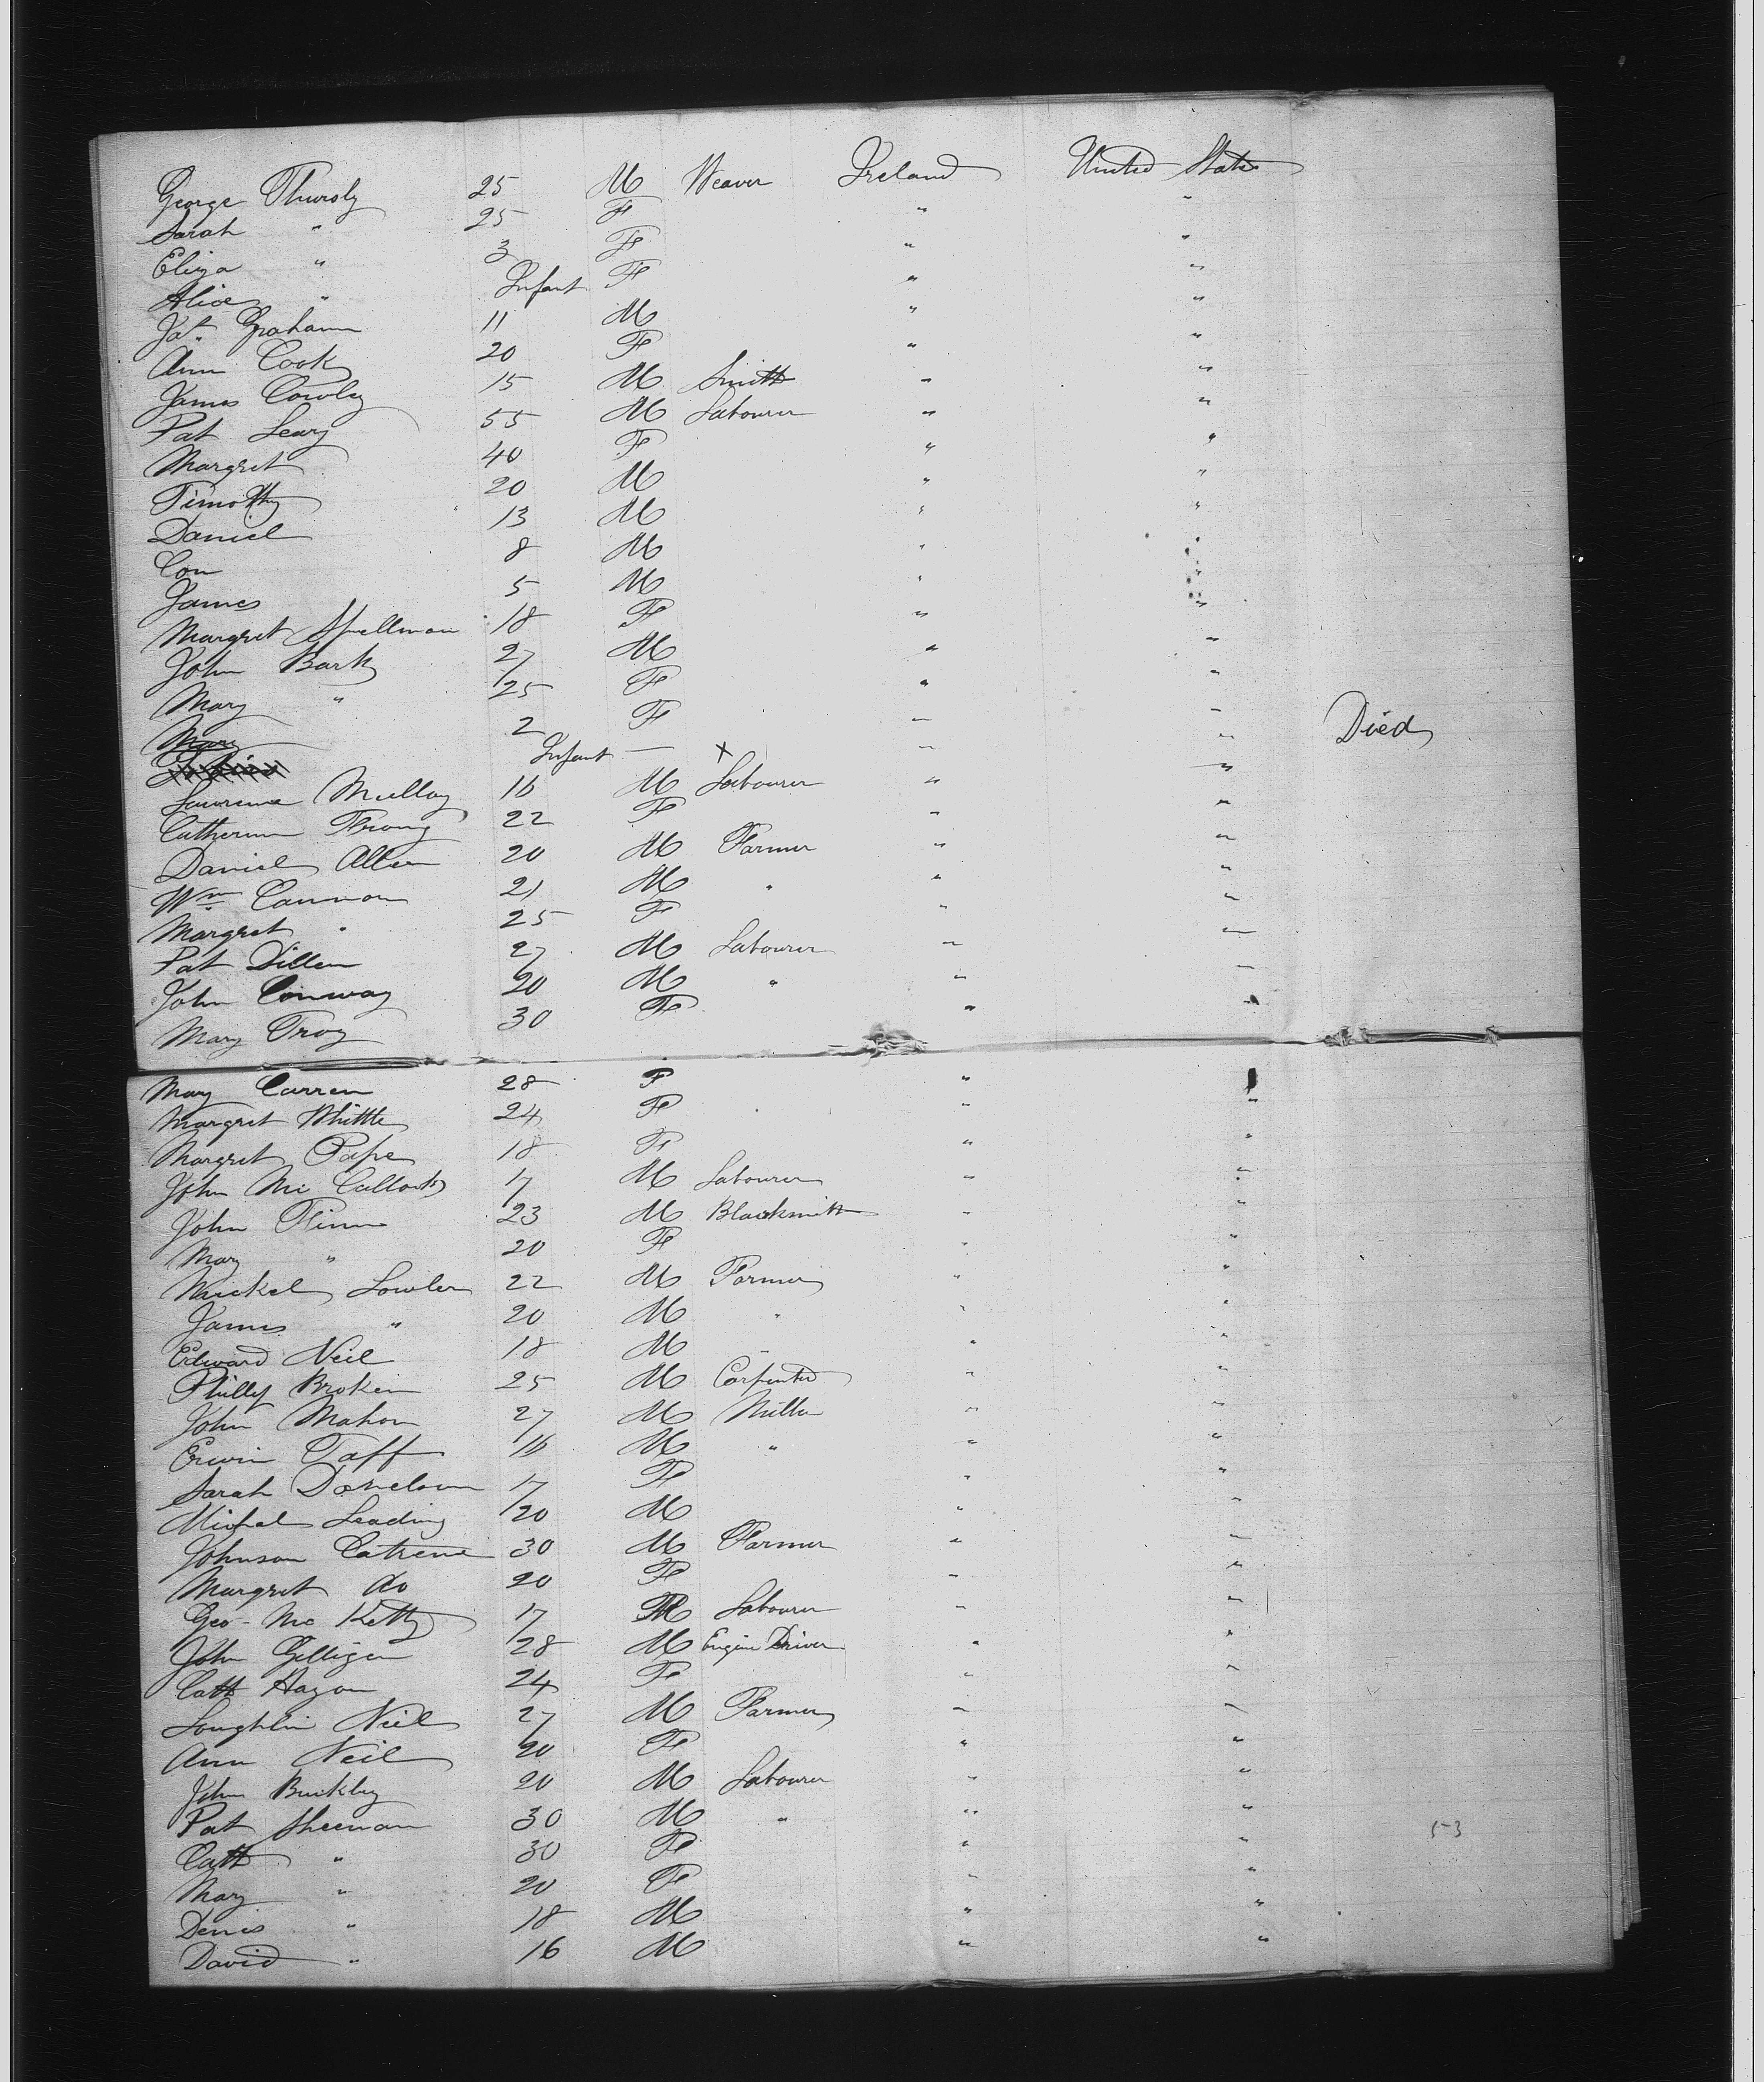 George Thursly 25 M Weaver Ireland United States
Sarah " 25 F " "
Eliza " 3 F " "
Alice " Infant F " "
Pat. Graham 11 M " "
Ann Cook 20 F " "
James Cowley 15 M Smith " "
Pat Leary 55 M Labourer " "
Margret 40 F " "
Timothy 20 M " "
Daniel 13 M " "
Con 8 M " "
James 5 M " "
Margret Spellman 18 F " "
John Bark 27 M " "
Mary " 25 F " "
Mary 2 F " "
Infant — X " " Died
Lawrence Mulloy 16 M Labourer " "
Catherine 22 F " "
Daniel Allen 20 M Farmer " "
Wm Cannon 21 M " " "
Margret " 25 F " "
Pat Dillen 27 M Labourer " "
John Conway 20 M " " "
Mary Troy 30 F " "
Mary Curren 28 F " "
Margret Whittle 24 F " "
Margret Pape 18 F " "
John Mc 17 M Labourer " "
John Flinn 23 M Blacksmith " "
Mary " 20 F " "
Mickel Lowler 22 M Farmer " "
James " 20 M " " "
Edward Neil 18 M " " "
Philly Broken 25 M Carpenter " "
John Mahon 27 M Miller " "
Erwin Taff 16 M " " "
Sarah Donelson 17 F " "
Michal Leading 20 M " "
Johnson Catrene 30 M Farmer " "
Margret do 20 F " "
Geo. Mc Ketty 17 M Labourer " "
John Gilligen 28 M Engine Driver " "
Cath Hagon 24 F " "
Loughlin Neil 27 M Farmer " "
Ann Neil 20 F " "
John Buckley 20 M Labourer " "
Pat Sheenan 30 M " " "
Cath " 30 F " " 53
Mary " 20 F " "
Denis " 18 M " "
David " 16 M " "